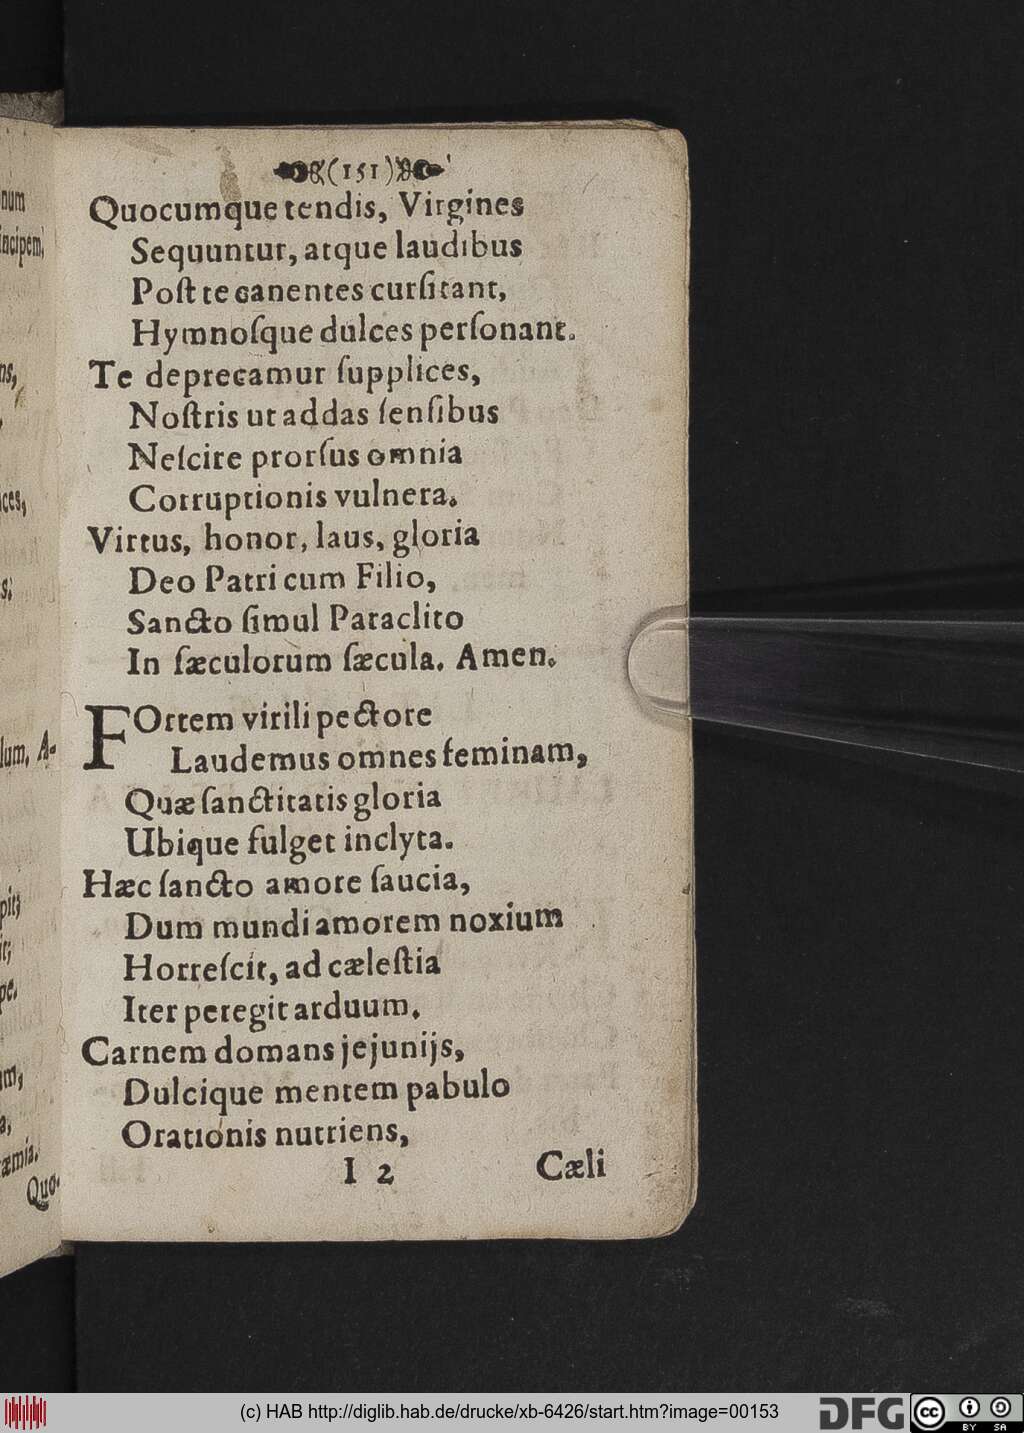 num
incipem,
ns,
ces,
s;
lum, A-
pit;
it;
pe.
um,
a,
æmia.
Quo-
(151)
Quocumque tendis, Virgines
Sequuntur, atque laudibus
Poſt te canentes curſitant,
Hymnoſque dulces perſonant.
Te deprecamur ſupplices,
Noſtris ut addas ſenſibus
Neſcire prorſus omnia
Corruptionis vulnera.
Virtus, honor, laus, gloria
Deo Patri cum Filio,
Sancto ſimul Paraclito
In ſæculorum ſæcula. Amen.
FOrtem virili pectore
Laudemus omnes feminam,
Quæ ſanctitatis gloria
Ubique fulget inclyta.
Hæc ſancto amore ſaucia,
Dum mundi amorem noxium
Horreſcit, ad cæleſtia
Iter peregit arduum.
Carnem domans jejunijs,
Dulcique mentem pabulo
Orationis nutriens,
I 2 Cæli
(c) HAB http://diglib.hab.de/drucke/xb-6426/start.htm?image=00153
DFG cc BY SA